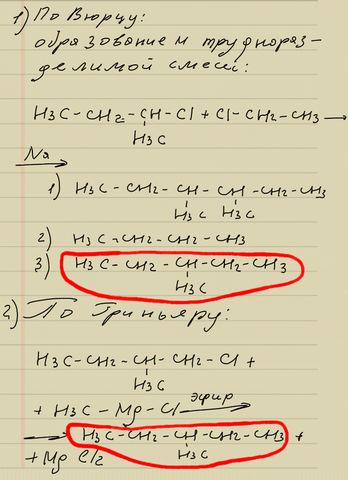 1) По Вюрцу:
образованием труднораз-
делимой смеси:
H3C-CH2-CH-Cl + Cl-CH2-CH3 →
H3C
Na →
1) H3C-CH2-CH-CH-CH2-CH3
H3C H3C
2) H3C-CH2-CH2-CH3
3) H3C-CH2-CH-CH2-CH3
H3C
2) По Гриньяру:
H3C-CH2-CH-CH2-Cl +
H3C
+ H3C-Mg-Cl эфир →
→ H3C-CH2-CH-CH2-CH3 +
H3C
+ MgCl2